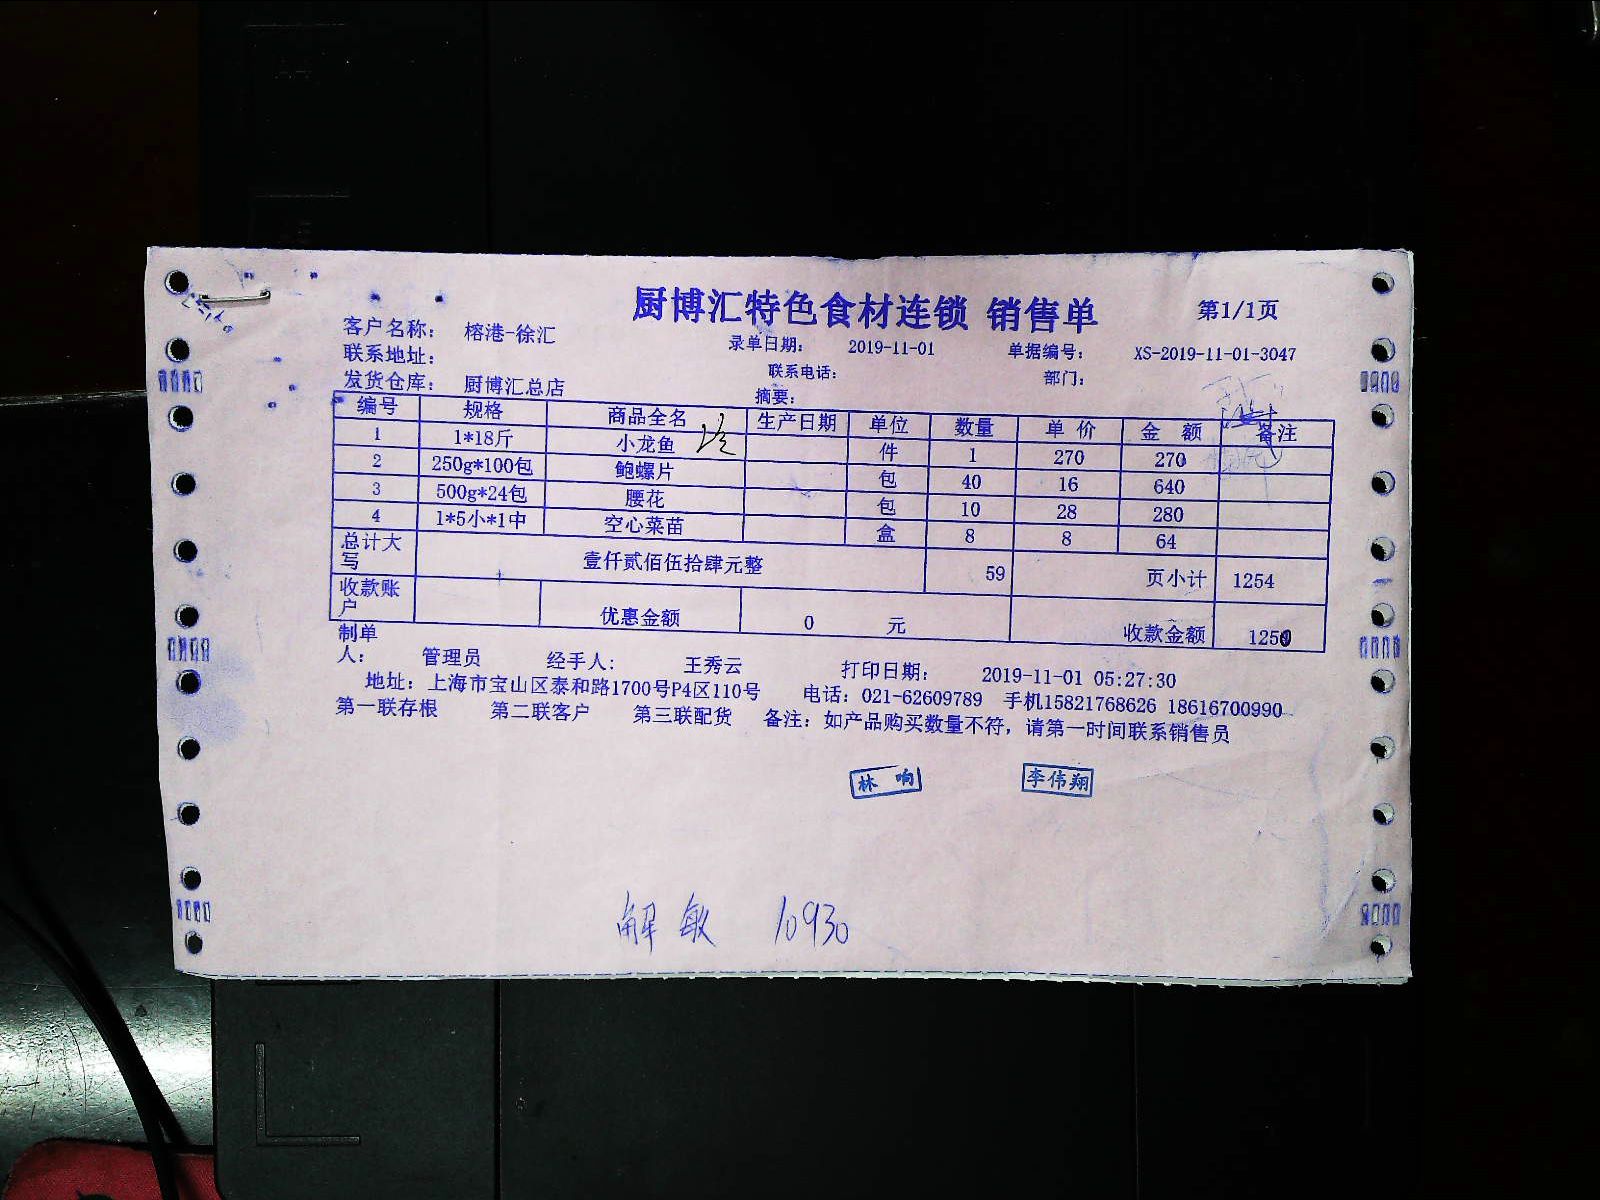 厨博汇特色食材连锁 销售单 第1/1页
客户名称: 榕港-徐汇 录单日期: 2019-11-01 单据编号: XS-2019-11-01-3047
联系地址: 联系电话: 部门:
发货仓库: 厨博汇总店 摘要:
编号 规格 商品全名 生产日期 单位 数量 单 价 金 额 备注
1 1*18斤 小龙鱼 件 1 270 270
2 250g*100包 鲍螺片 包 40 16 640
3 500g*24包 腰花 包 10 28 280
4 1*5小*1中 空心菜苗 盒 8 8 64
总计大写 壹仟贰佰伍拾肆元整 59 页小计 1254
收款账户 优惠金额 0 元 收款金额 1250
制单人: 管理员 经手人: 王秀云 打印日期: 2019-11-01 05:27:30
地址: 上海市宝山区泰和路1700号P4区110号 电话: 021-62609789 手机15821768626 18616700990
第一联存根 第二联客户 第三联配货 备注: 如产品购买数量不符, 请第一时间联系销售员
林响 李伟翔
解敏 10930